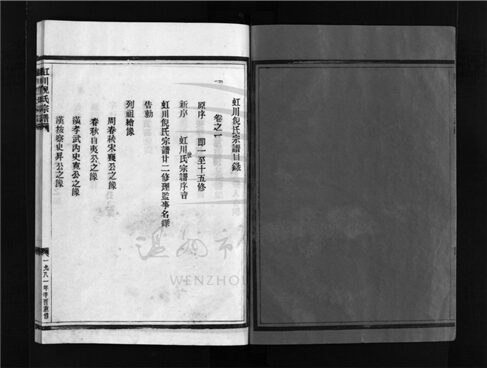 虹川倪氏宗譜目錄
卷之一
原序 即一至十五修
新序 虹川倪氏宗譜序言
虹川倪氏宗譜廿二修理監事名錄
告勅
列祖繪像
周春秋宋襄公之像
春秋目夷公之像
漢孝武內史寬公之像
漢按察史昇公之像
虹川倪氏宗譜
卷之一
溫州市
WENZHOU